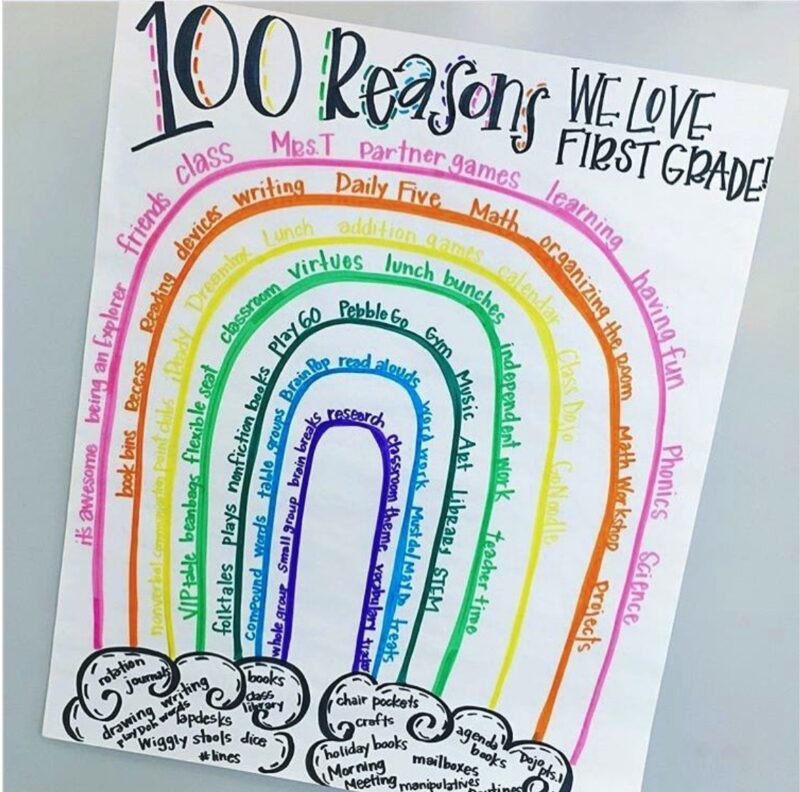 100 Reasons WE LOVE
FIRST GRADE!
it's awesome being an Explorer friends class Mrs.T partner games learning having fun Phonics Science
book bins Recess Reading devices writing Daily Five Math organizing the room Math Workshop Projects
nonverbal communication paint dabs iReady Dreambox Lunch addition games calendar Class Dojo GoNoodle
VIP table beanbags flexible seat classroom virtues lunch bunches independent work teacher time
folktales plays nonfiction books Play 60 PebbleGo Gym Music Art Library STEM
compound words table groups BrainPop read alouds word work Mustdo/Mayto treats
whole group small group brain breaks research classroom theme vocabulary
rotation
journals
drawing writing
playdoh words
lapdesks
Wiggly stools dice
#lines
books
class
library
chair pockets
crafts
holiday books
Morning
Meeting
mailboxes
manipulatives
agenda
books
Dojo
pts.!